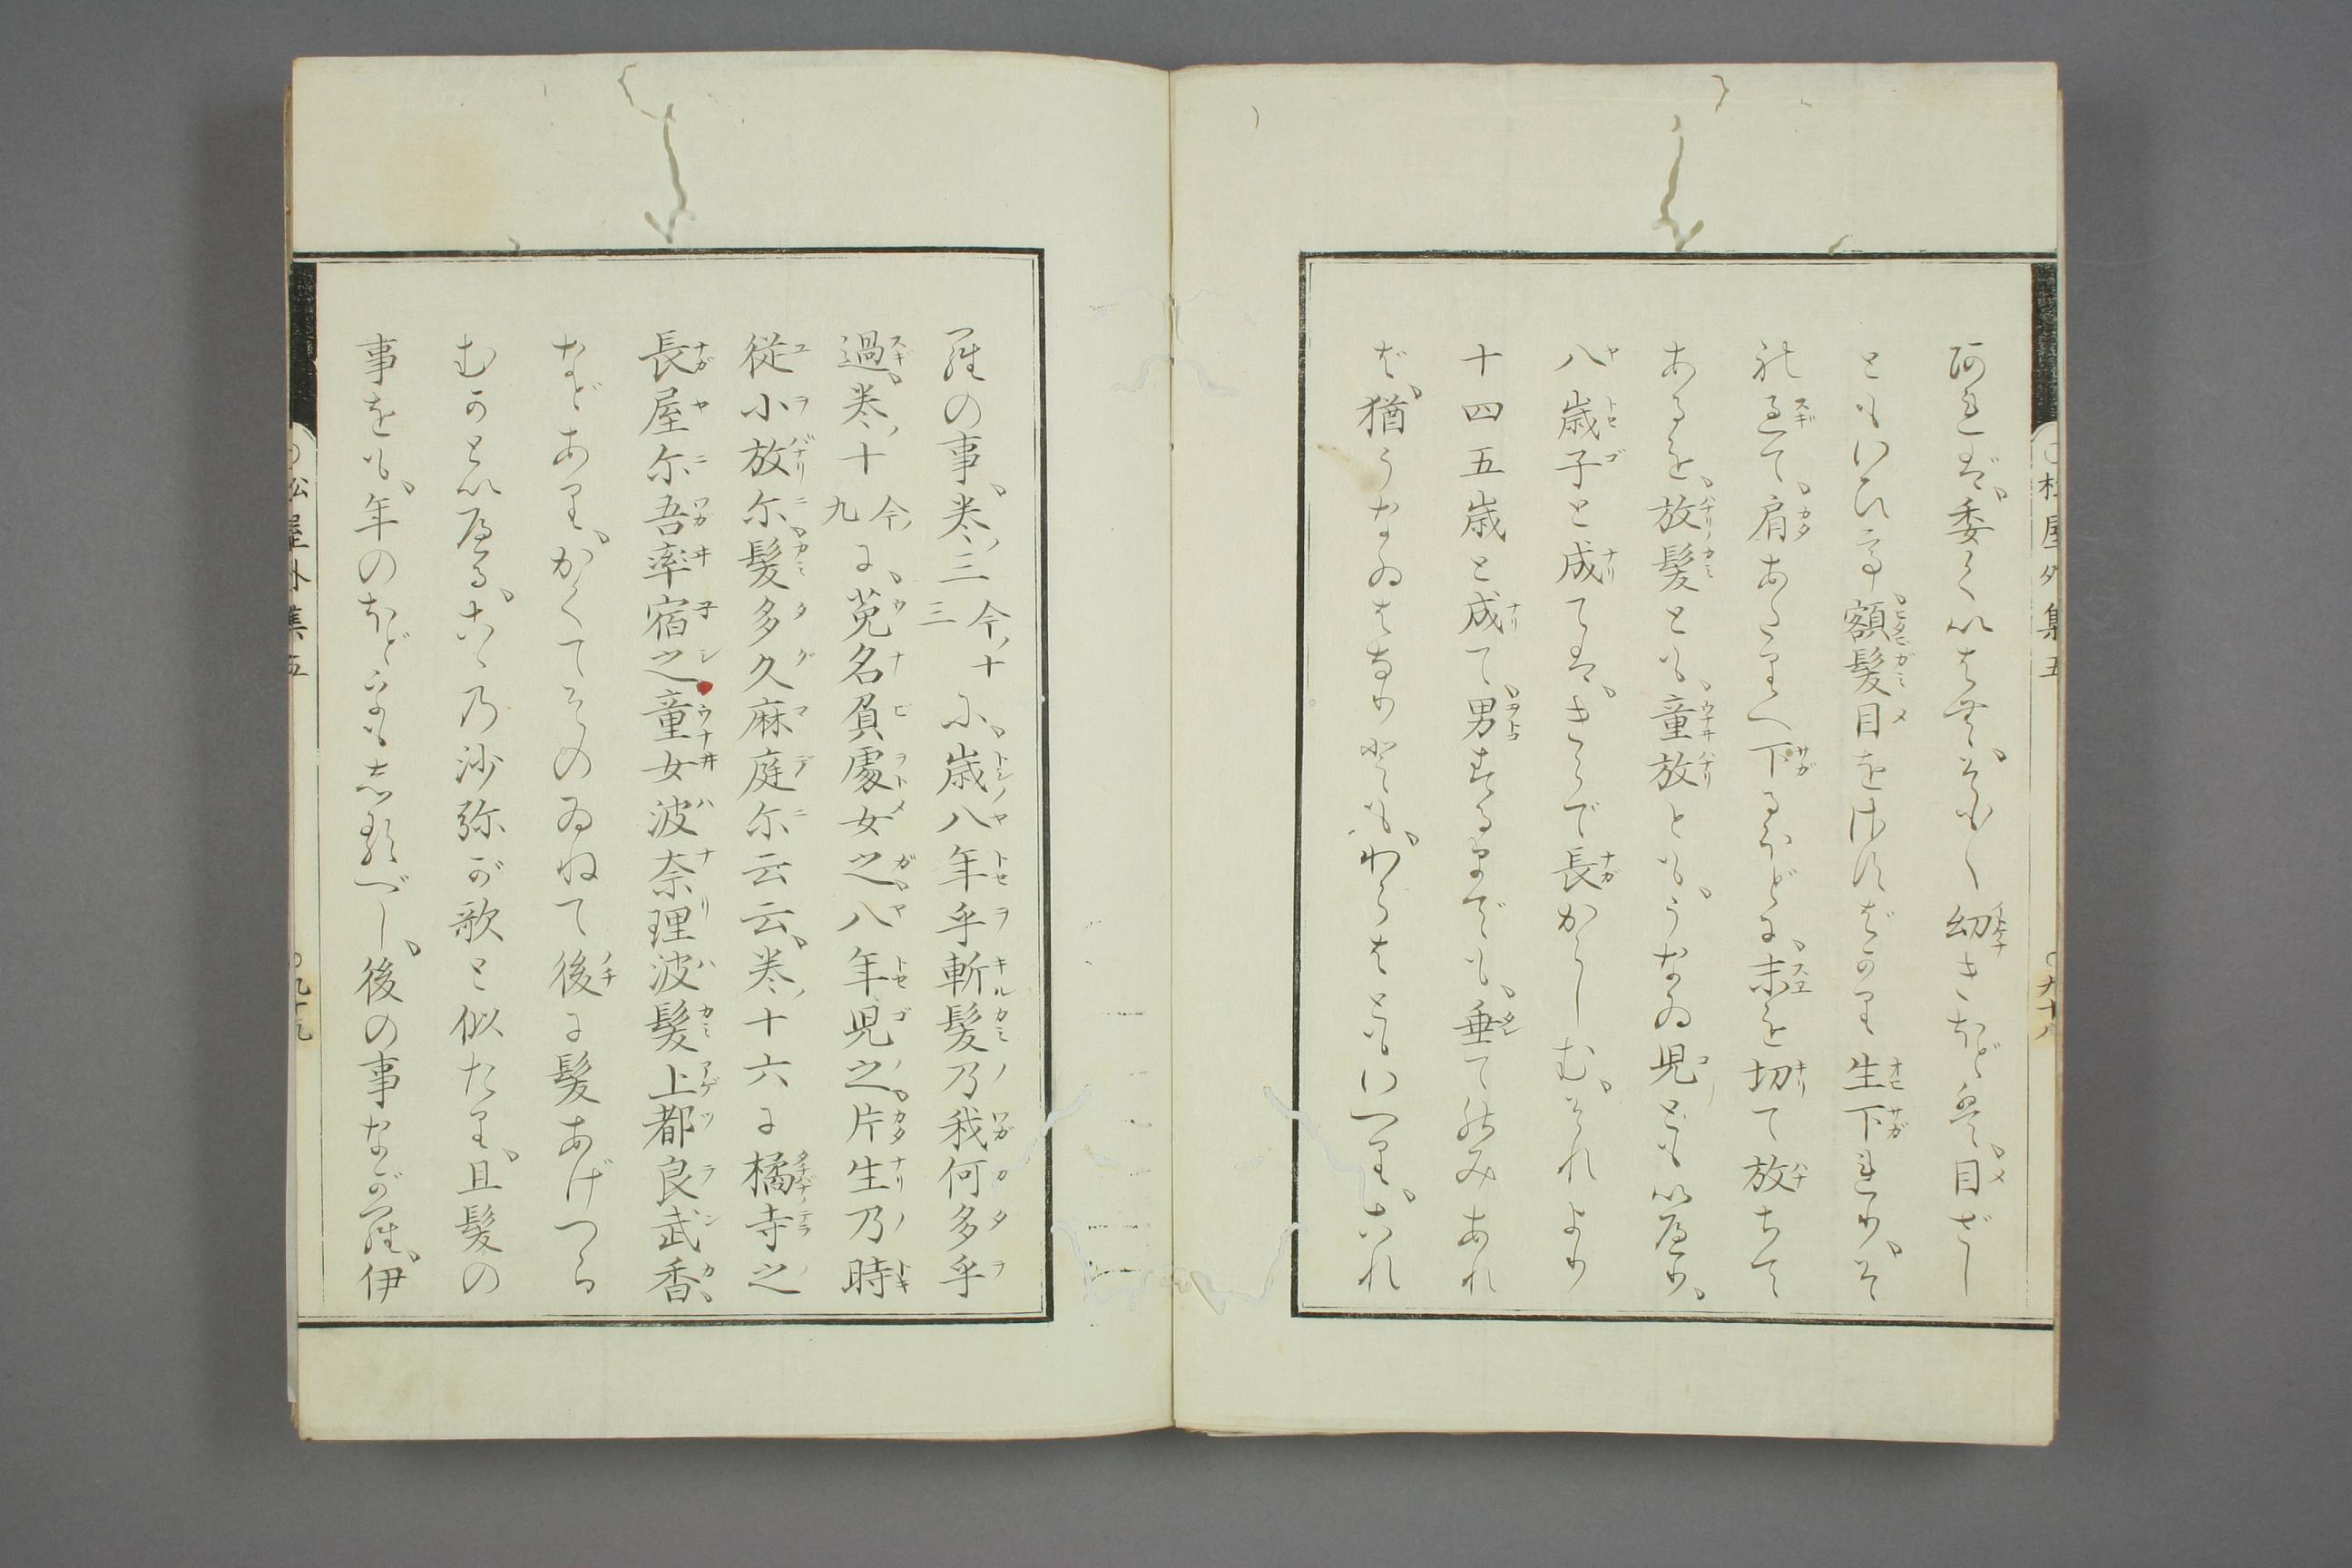 阿れば、委くいはむ、そも〳〵幼きほどは、目ざし
ともいひて、額髪目をばかり生下れり、そ
れ過て、肩あたりへ下るほどに、末を切て放ちて
あるを、放髪とも、童放とも、うなゐ児ともいへり、
八歳子と成ては、きらで長からしむ、それより
十四五歳と成て、男するまでも、垂てのみあれ
ば、猶うなゐはなりとも、わらはともいへり、これ
羅の事、巻三今十三に、歳八年乎斬髪乃我何多乎
過、巻十今九に、菟名負處女之、八年児之、片生乃時
從小放尓、髪多久麻庭尓云云、巻十六に橘寺之
長屋尓吾率宿之童女波奈理波髪上都良武香、
などあり、かくてそのゐねて後に髪あげつら
むかといへる、こゝ乃沙弥が歌と似たり、且髪の
事をも、年のほどをも知るべし、後の事ながら、伊
松屋外集五
九十八
松屋外集五
九十九